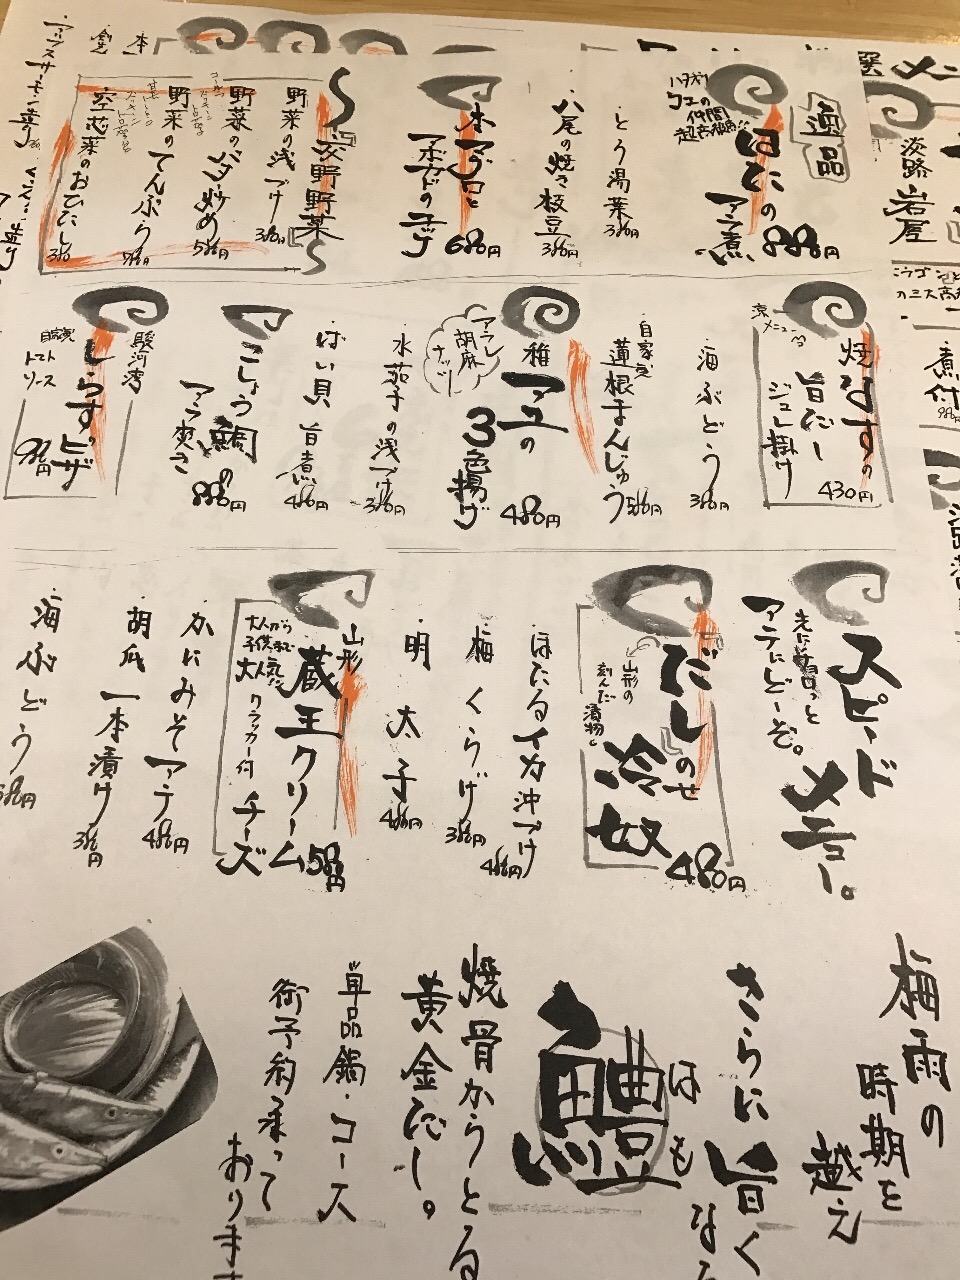 逸品
はたの
アラ煮
880円
とろ湯葉
380円
八尾の焼き枝豆
380円
本マグロと
アボカドの
680円
交野野菜
野菜の浅づけ
380円
野菜のバター炒め
580円
野菜のてんぷら
空芯菜のおひたし
380
淡路
岩屋
煮付
涼メニュー
焼なすの
旨だし
ジュレ掛け
430円
海ぶどう
380円
自家製
蓮根まんじゅう
580円
稚アユの
3色揚げ
480円
アラレ
胡麻
ナッツ
水茄子の浅づけ
380円
ばい貝 旨煮
480円
こしょう鯛の
アラ炊き
880円
駿河湾
しらすピザ
自家製
トマト
ソース
980円
スピードメニュー。
先にササッと
アテにどーぞ。
だしのせ
冷奴
480円
山形の
刻んだ漬物
ほたるイカ沖づけ
480円
梅くらげ
380円
明太子
480円
山形
蔵王クリーム
チーズ
580円
大人から
子供まで
大人気
クラッカー付
かにみそアテ
480円
胡瓜一本漬け
380円
海ぶどう
380円
梅雨の
時期を
越え
さらに旨くなる
はも
鱧
焼骨からとる
黄金だし。
単品鍋・コース
御予約承って
おります